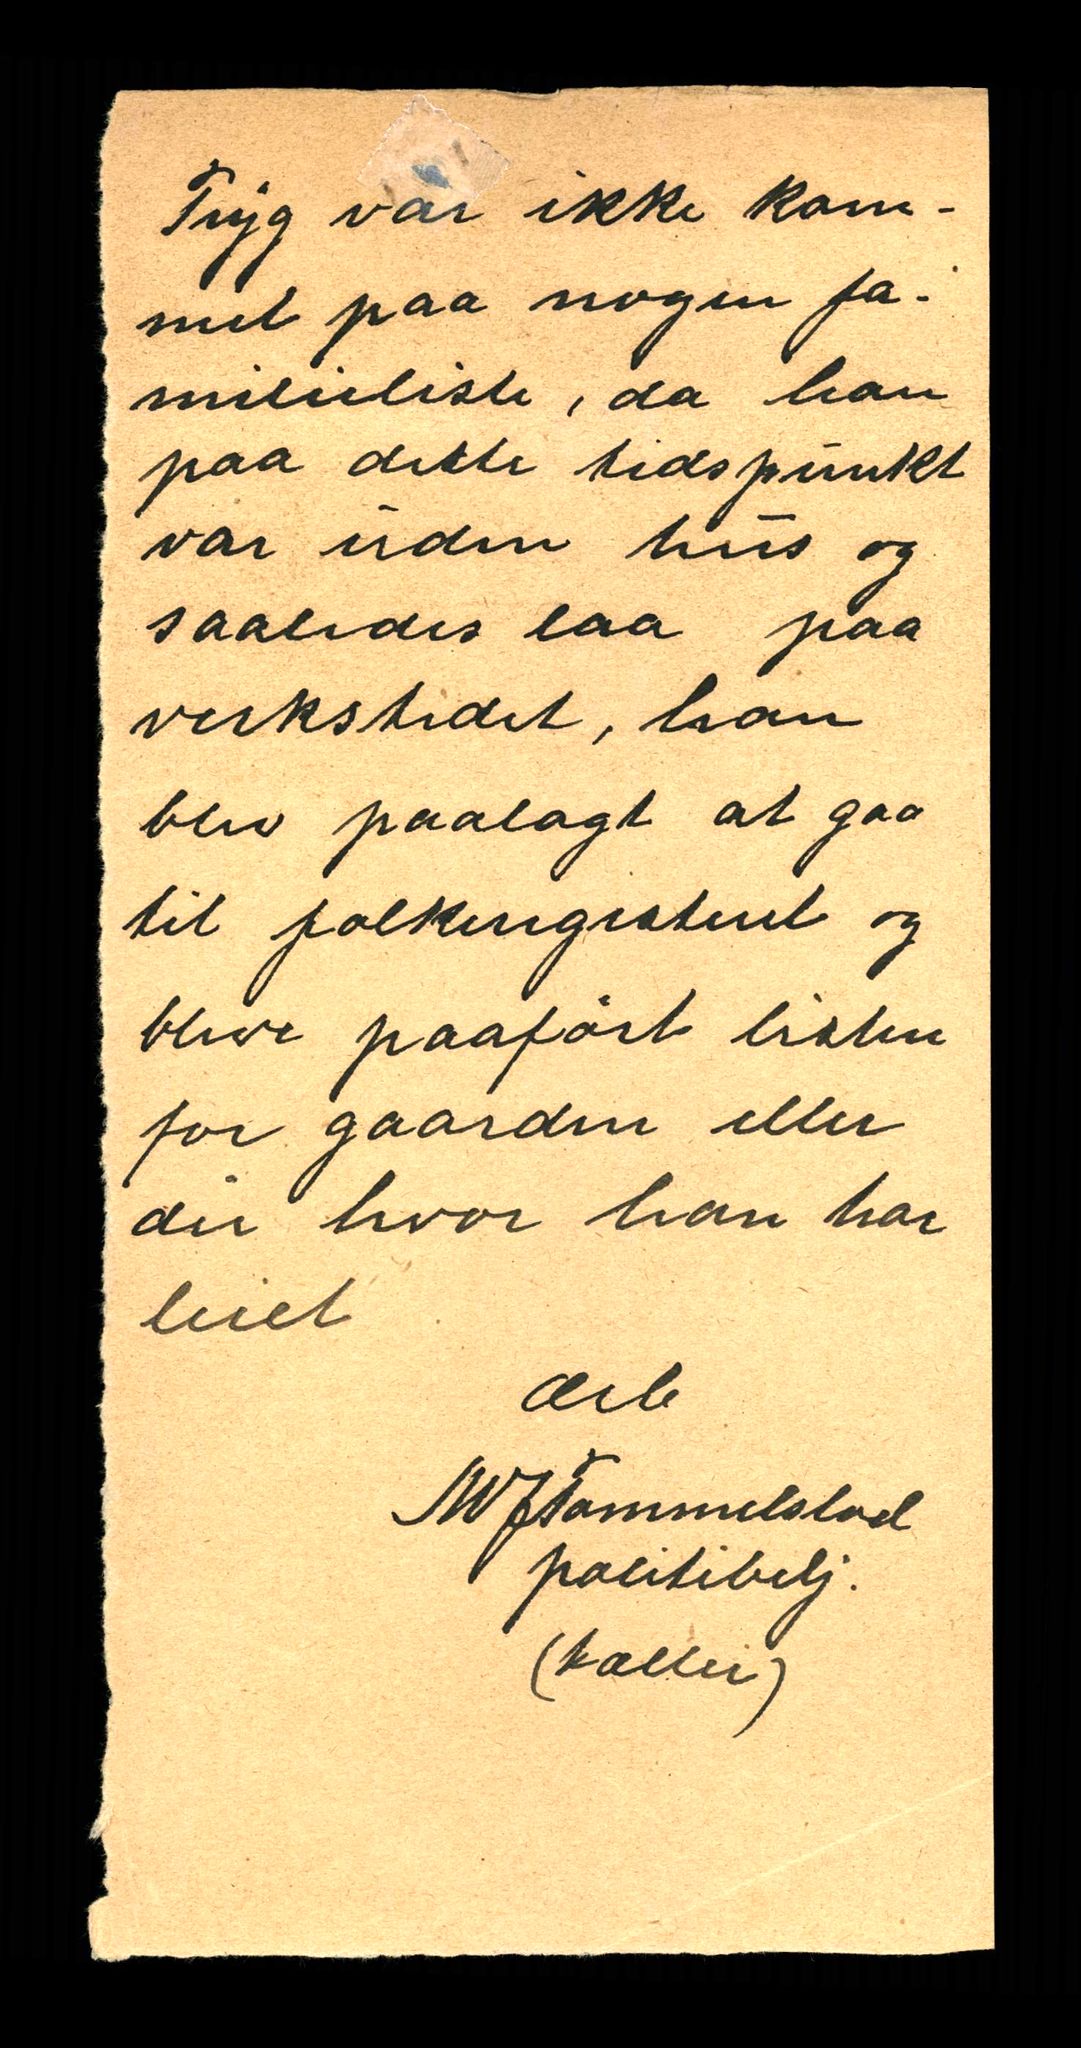 Tryg var ikke kom-
met paa nogen fa-
milieliste, da han
paa dette tidspunkt
var uden hus og
saaledes laa paa
verkstedet, han
blev paalagt at gaa
til folkeregisteret og
blive paaført listen
for gaarden eller
der hvor han har
leiet
Ærb
Tommelstad
politibetj.